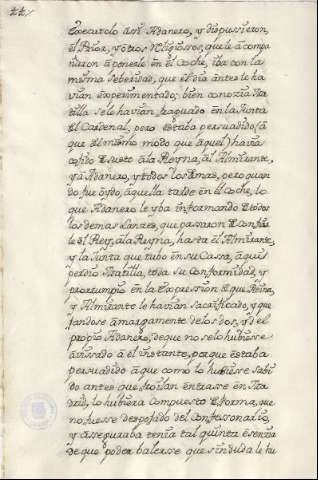 Executolo assi Adanero, y Dispussieron,
el Prior, y otros Religiossos, que le acompa
ñaron a ponerle en el Coche, iba con la
misma seberidad, que el dia antes le ha
vian experimentado; bien conozia Ma
tilla se le havian fraguado en la Junta
el Cardenal, pero estaba persuadido, a
que el mismo modo que aquel havia
cojido el susto a la Reyna, al Almirante,
y a Adanero, y todos los demas, pero quan
do fue oydo, aquella tarde en el Coche, lo
que Adanero le yba informando de todos
los demas Lanzes, que passaron el Confes
le el Rey, a la Reyna, hasta el Almirante,
y la Junta que tubo en su Cassa, aqui
perdio Matilla, toda su Conformidad, y
prorrumpio en la Expression de que Reyna,
y Almirante le havian sacrificado, y que
jandose amargamente de los dos, y del
proprio Adanero, de que no se lo hubiesse
avissado a el instante, porque estaba
persuadido a que como lo hubiesse sabi
do antes que Froilan entrasse en Ma
drid, lo hubiera Compuesto de forma, que
no fuesse desposeido del Confessonario,
y asseguraba tenia tal quinta esenzia
de que poder balerse que sin duda le hu